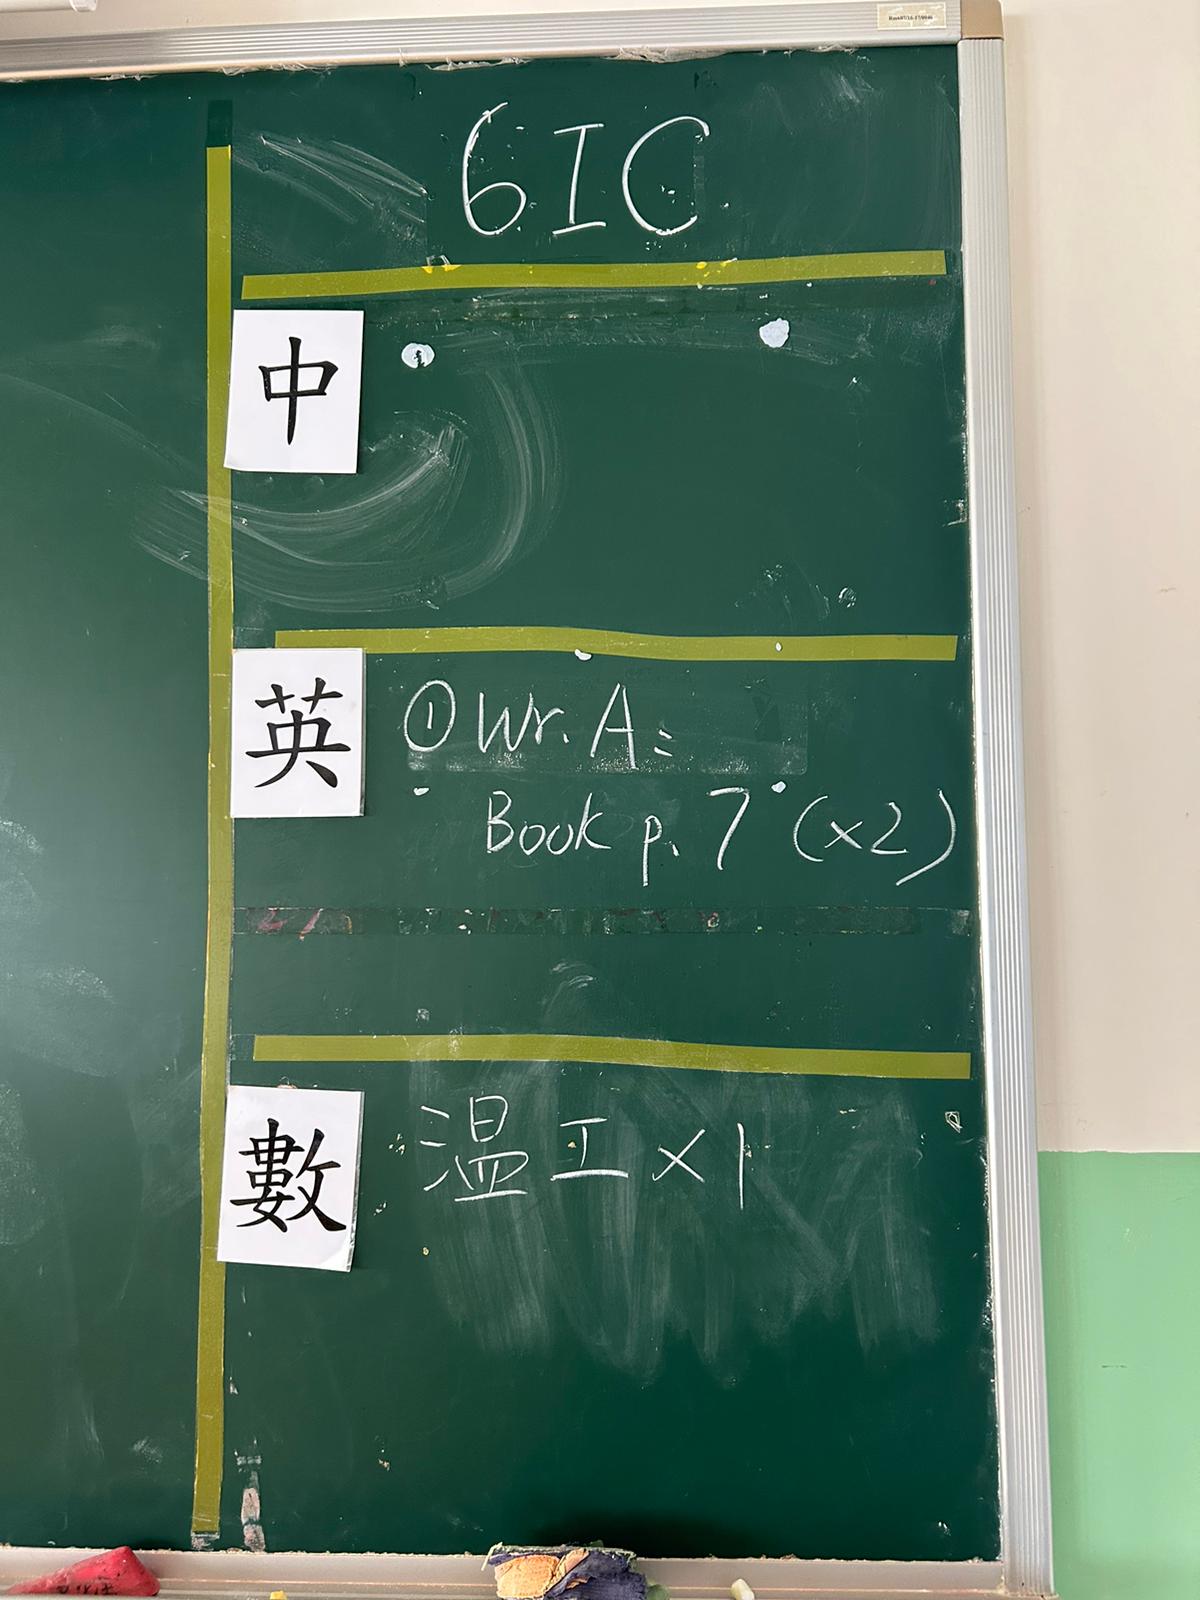 6IC
中
英
① Wr. A:
Book p. 7 (x2)
數
温工 x 1